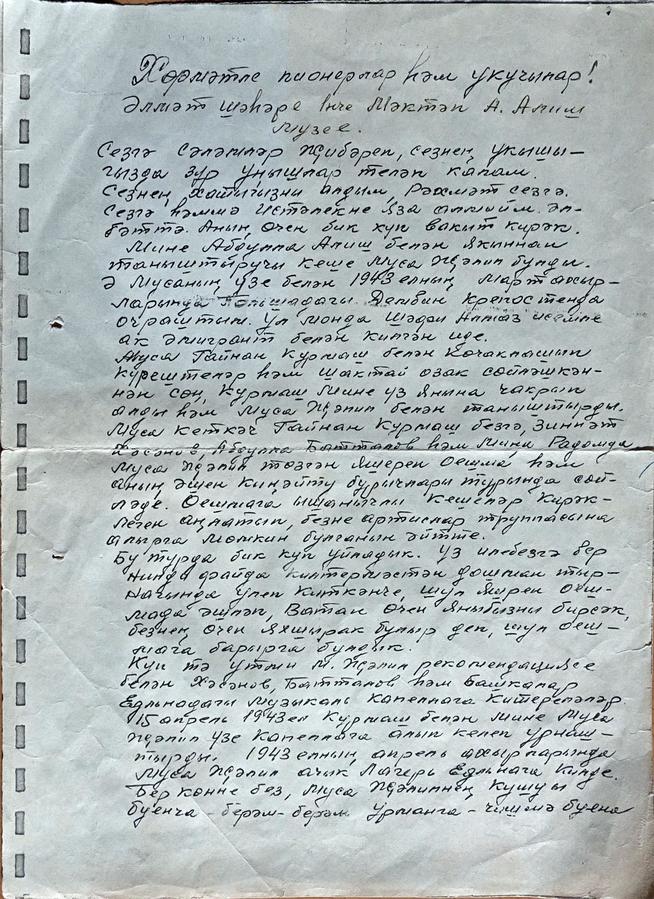 Хөрмәтле пионерлар һәм укучылар!
Әлмәт шәһәре нче Мәктәп А. Алиш
музее.
Сезгә сәламләр җибәреп, сезнең укышы-
гызда зур уңышлар теләп калам.
Сезнең хатыгызны алдым, Рәхмәт сезгә.
Сезгә һәммә истәлекне яза алмыйм әл-
бәттә. Аның өчен бик күп вакыт кирәк.
Мине Абдулла Алиш белән якыннан
таныштыручы кеше Муса Җәлил булды.
Ә Мусаның үзе белән 1943 елның март ахыр-
ларында Польшадагы Демблин крепостенда
очраштым. Ул монда Шәфи Алмаз исемле
ак эмигрант белән килгән иде.
Муса Гайнан Курмаш белән кочаклашып
күрештеләр һәм шактый озак сөйләшкән-
нән соң, Курмаш мине үз янына чакрып
алды һәм Муса Җәлил белән таныштырды.
Муса киткәч Гайнан Курмаш безгә, Зиннәт
Хәсәнов, Абдулла Батталов һәм миңа Радомда
Муса Җәлил төзгән яшерен оешма һәм
аның эшен киңәйтү бурычлары турында сөй-
ләде. Оешмага ышанычлы кешеләр кирәк-
леген аңлатып, безне артистлар труппасына
алырга мөмкин булганын әйтте.
Бу турда бик күп уйладык. Үз илебезгә бер
нинди файда китермәстән дошман тыр-
нагында үлеп киткәнче, шул яшерен оеш-
мада эшләп, Ватан өчен яныбызны бирсәк,
безнең өчен яхшырак булыр дип, шул оеш-
мага барырга булдык.
Күп тә үтми М. Җәлил рекомендациясе
белән Хәсәнов, Батталов һәм башкалар
Едльнодагы музыкаль капеллага китерелделәр
15 апрель 1943 ел Курмаш белән мине Муса
Җәлил үзе капеллага алып килеп урнаш-
тырды. 1943 елның апрель ахырларында
Муса Җәлил ачык лагерь Едльнага килде.
Бер көнне без, Муса Җәлилнең кушуы
буенча - берәм-берәм урманга - чишмә буена